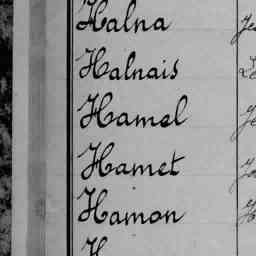 Halna
Halnais
Hamel
Hamet
Hamon
H